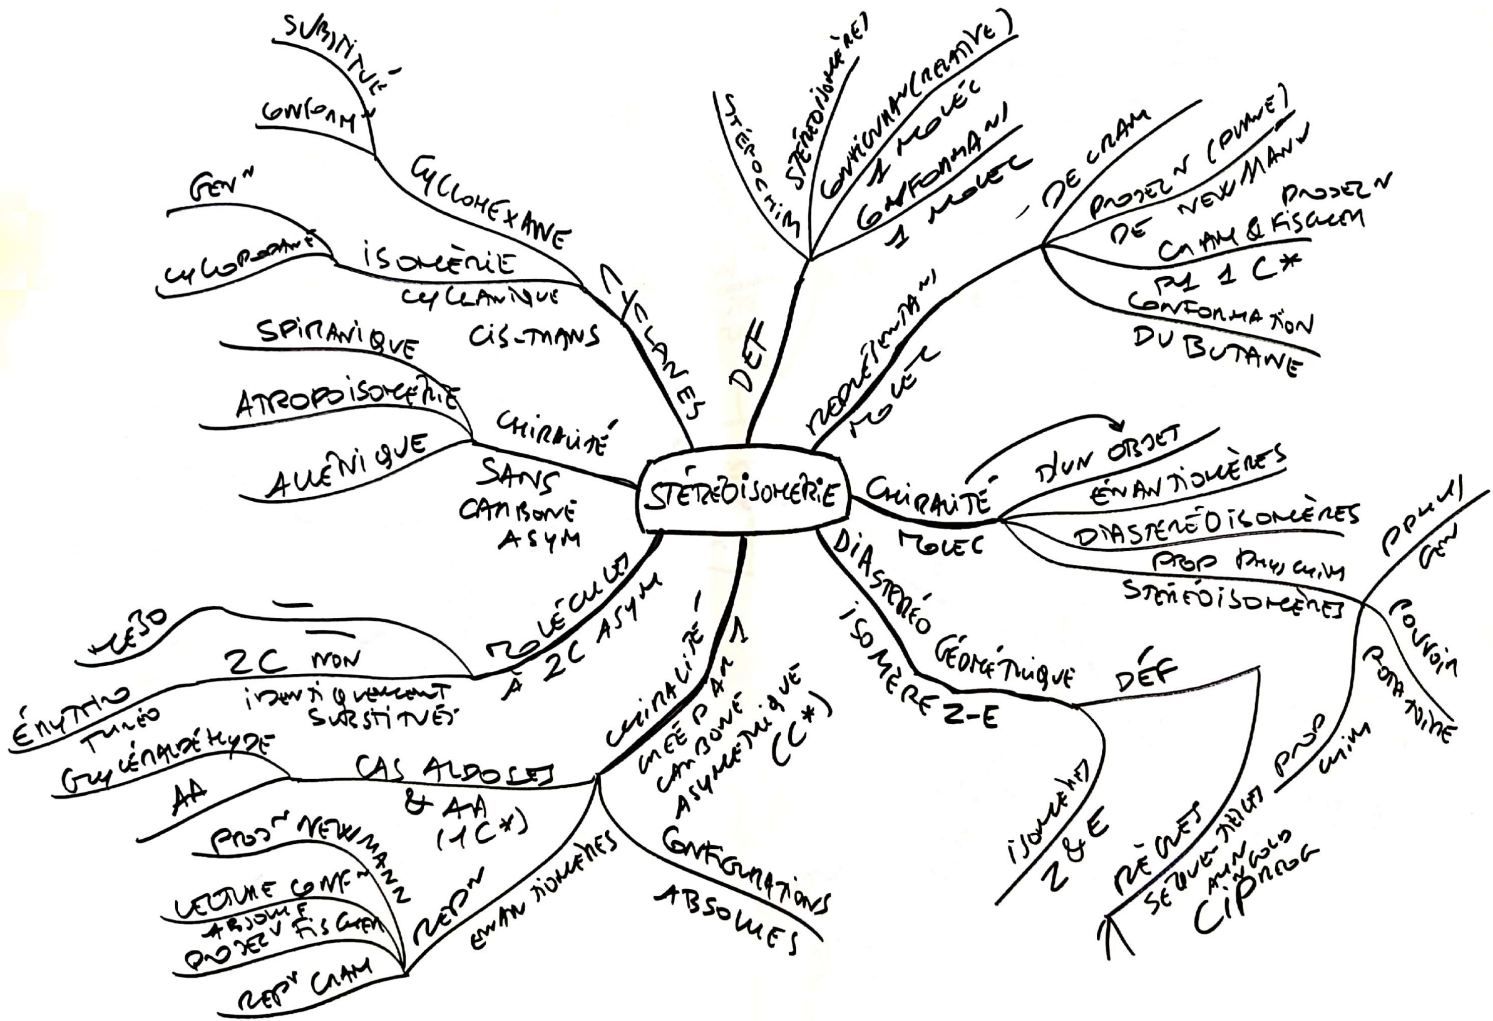 STÉRÉOISOMÉRIE
DEF
STÉRÉOCHIM
STÉRÉOISOMÈRES
CONFIGURAN (RELATIVE)
1 MOLÉC
CONFORMANS
1 MOLEC
REPRÉSENTANS
MOLEC
DE CRAM
PROJE2N (PLANE)
DE NEWMANN
PROJE2N
CRAM & FISCHER
1 C*
CONFORMATION
DU BUTANE
CHIRALITÉ
MOLEC
D'UN OBJET
ÉNANTIOMÈRES
DIASTÉRÉOISOMÈRES
PROP PHYS CHIM
STÉRÉOISOMÈRES
GEN
POUVOIR
ROTATOIRE
PROP
CHIM
DIASTÉRÉO
ISOMÈRE
GÉOMÉTRIQUE
Z-E
DÉF
RÈGLES
SEQUENTIELLES
INGOLD
CIPRELOG
ISOMÈRES
Z & E
CHIRALITÉ
CRÉÉ PAR 1
CARBONE
ASYMETRIQUE
(C*)
CONFIGURATIONS
ABSOLUES
REPN
ENANTIOMÈRES
PROJN NEWMANN
LECTURE CONFN
ABSOLUE
PROJE2N FISCHER
REPN CRAM
CAS ALDOSES
& AA
(1C*)
GLYCÉRALDÉHYDE
AA
MOLÉCULES
À 2C ASYM
MÉSO
2C NON
IDENTIQUEMENT
SUBSTITUÉS
ÉRYTHRO
THRÉO
CHIRALITÉ
SANS
CARBONE
ASYM
SPIRANIQUE
ATROPOISOMÉRIE
ALLÉNIQUE
CYCLANES
CYCLOHEXANE
SUBSTITUÉ
CONFORMN
ISOMÉRIE
CYCLANIQUE
CIS-TRANS
GENN
CYCLOPROPANE